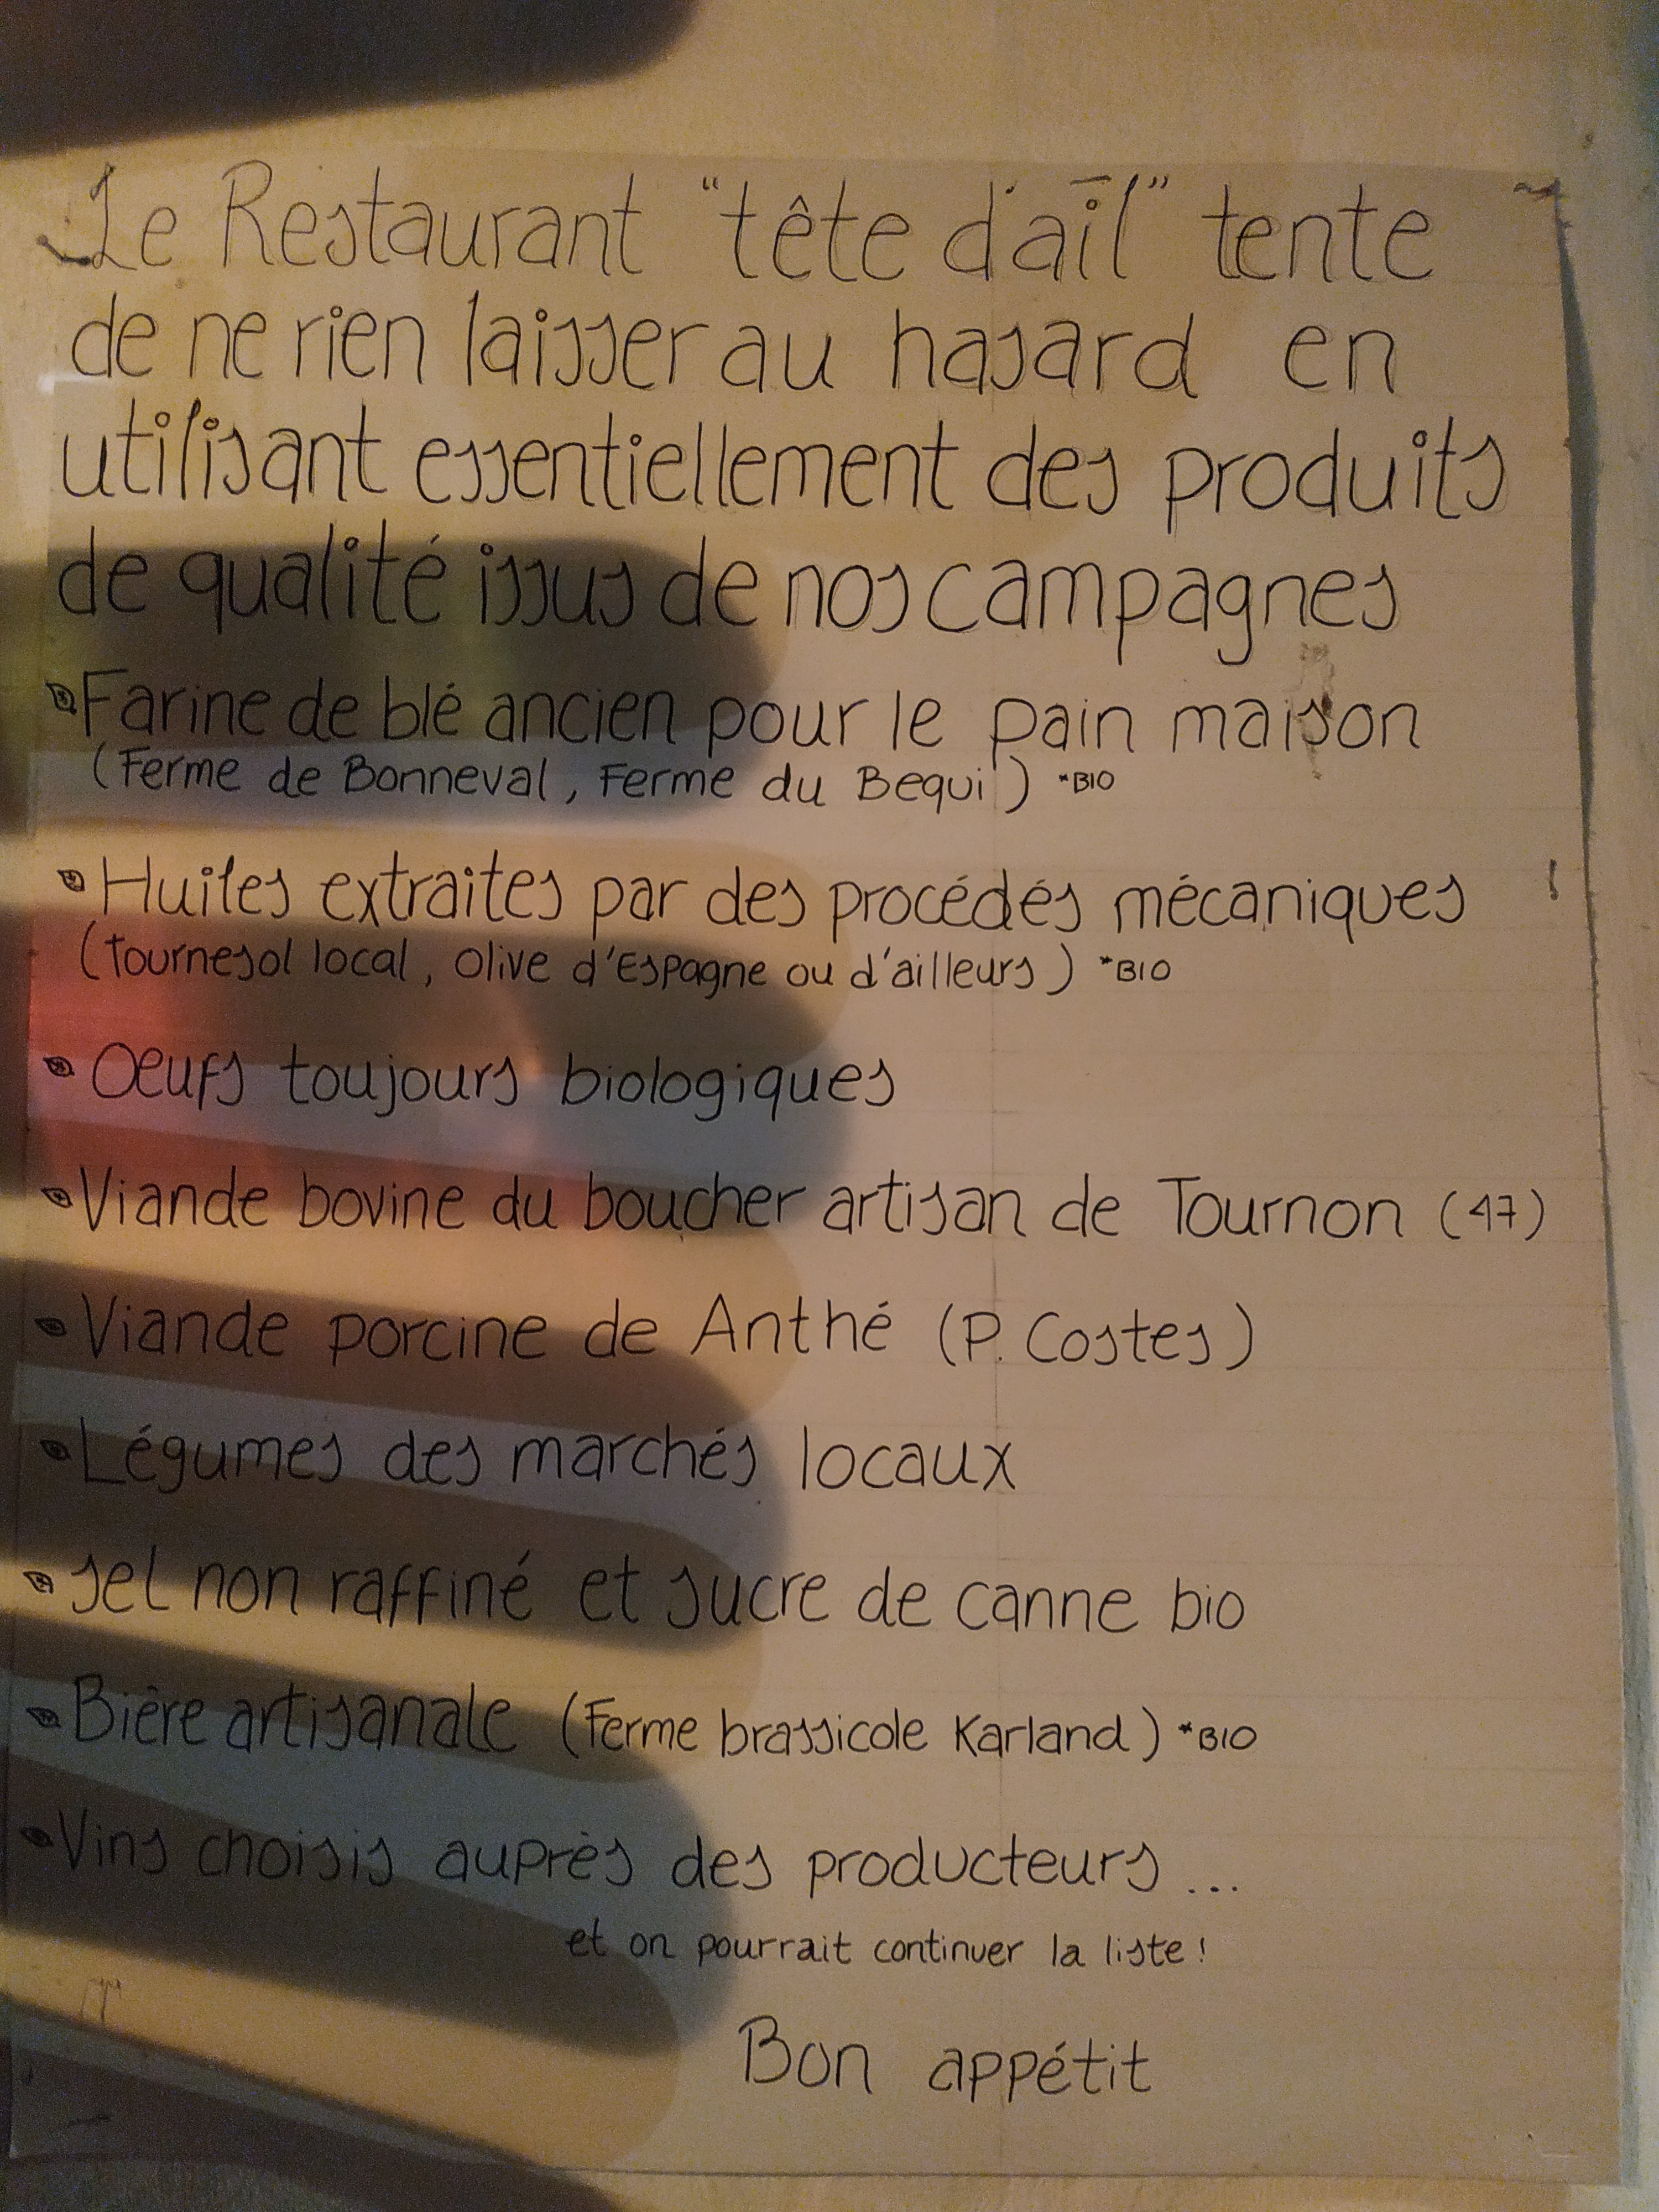 Le Restaurant "tête d'aïl" tente
de ne rien laisser au hasard en
utilisant essentiellement des produits
de qualité issus de nos campagnes
Farine de blé ancien pour le pain maison
(Ferme de Bonneval, Ferme du Bequi) *BIO
Huiles extraites par des procédés mécaniques !
(Tournesol local, olive d'Espagne ou d'ailleurs) *BIO
Oeufs toujours biologiques
Viande bovine du boucher artisan de Tournon (47)
Viande porcine de Anthé (P. Costes)
Légumes des marchés locaux
Sel non raffiné et sucre de canne bio
Bière artisanale (Ferme brassicole Karland) *BIO
Vins choisis auprès des producteurs ...
et on pourrait continuer la liste !
Bon appétit